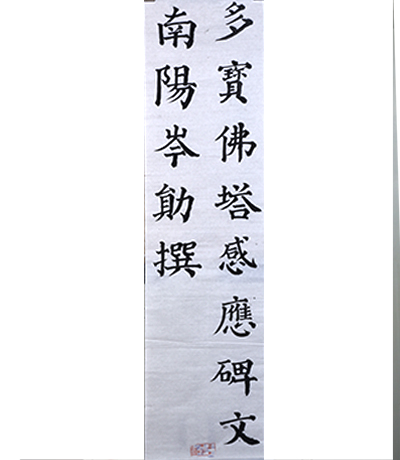 多寶佛塔感應碑文
南陽岑勛撰